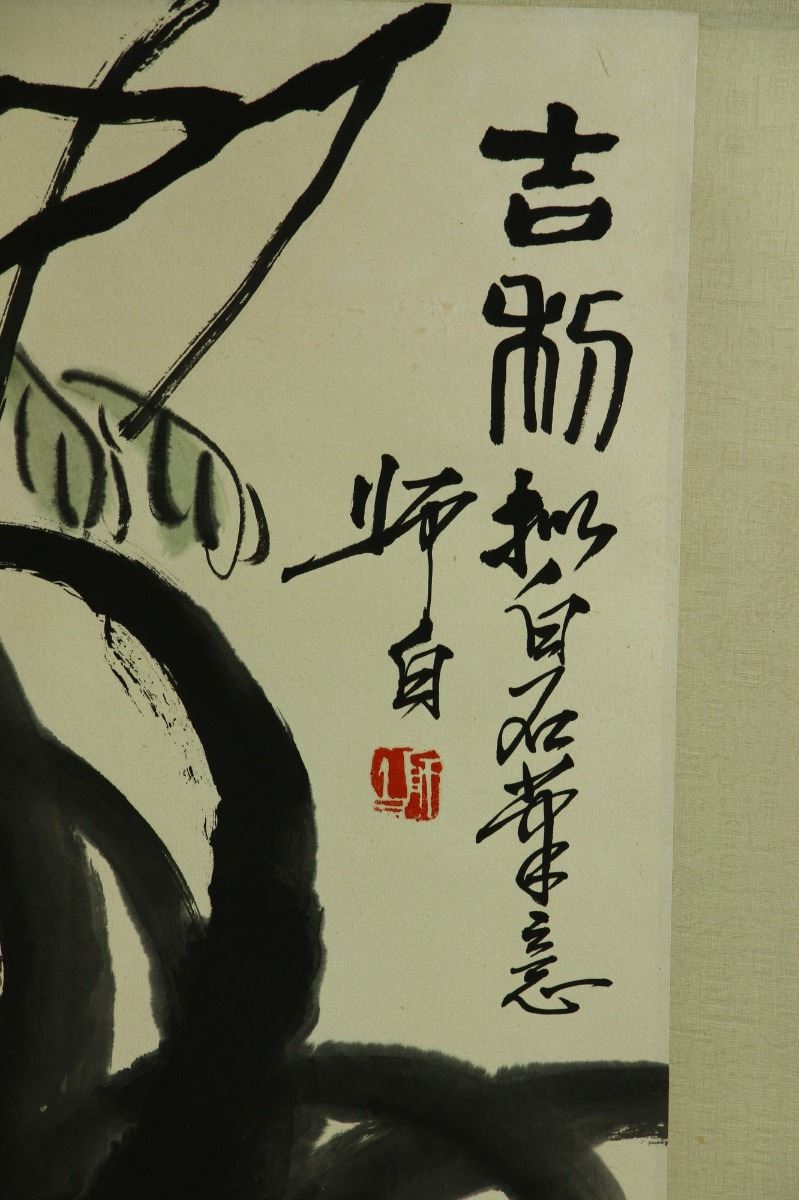 吉利
拟白石筆意
师白